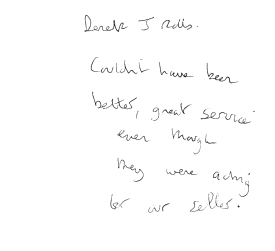 Derek J Rolls.
Couldn't have been
better, great service
even though
they were acting
for our seller.